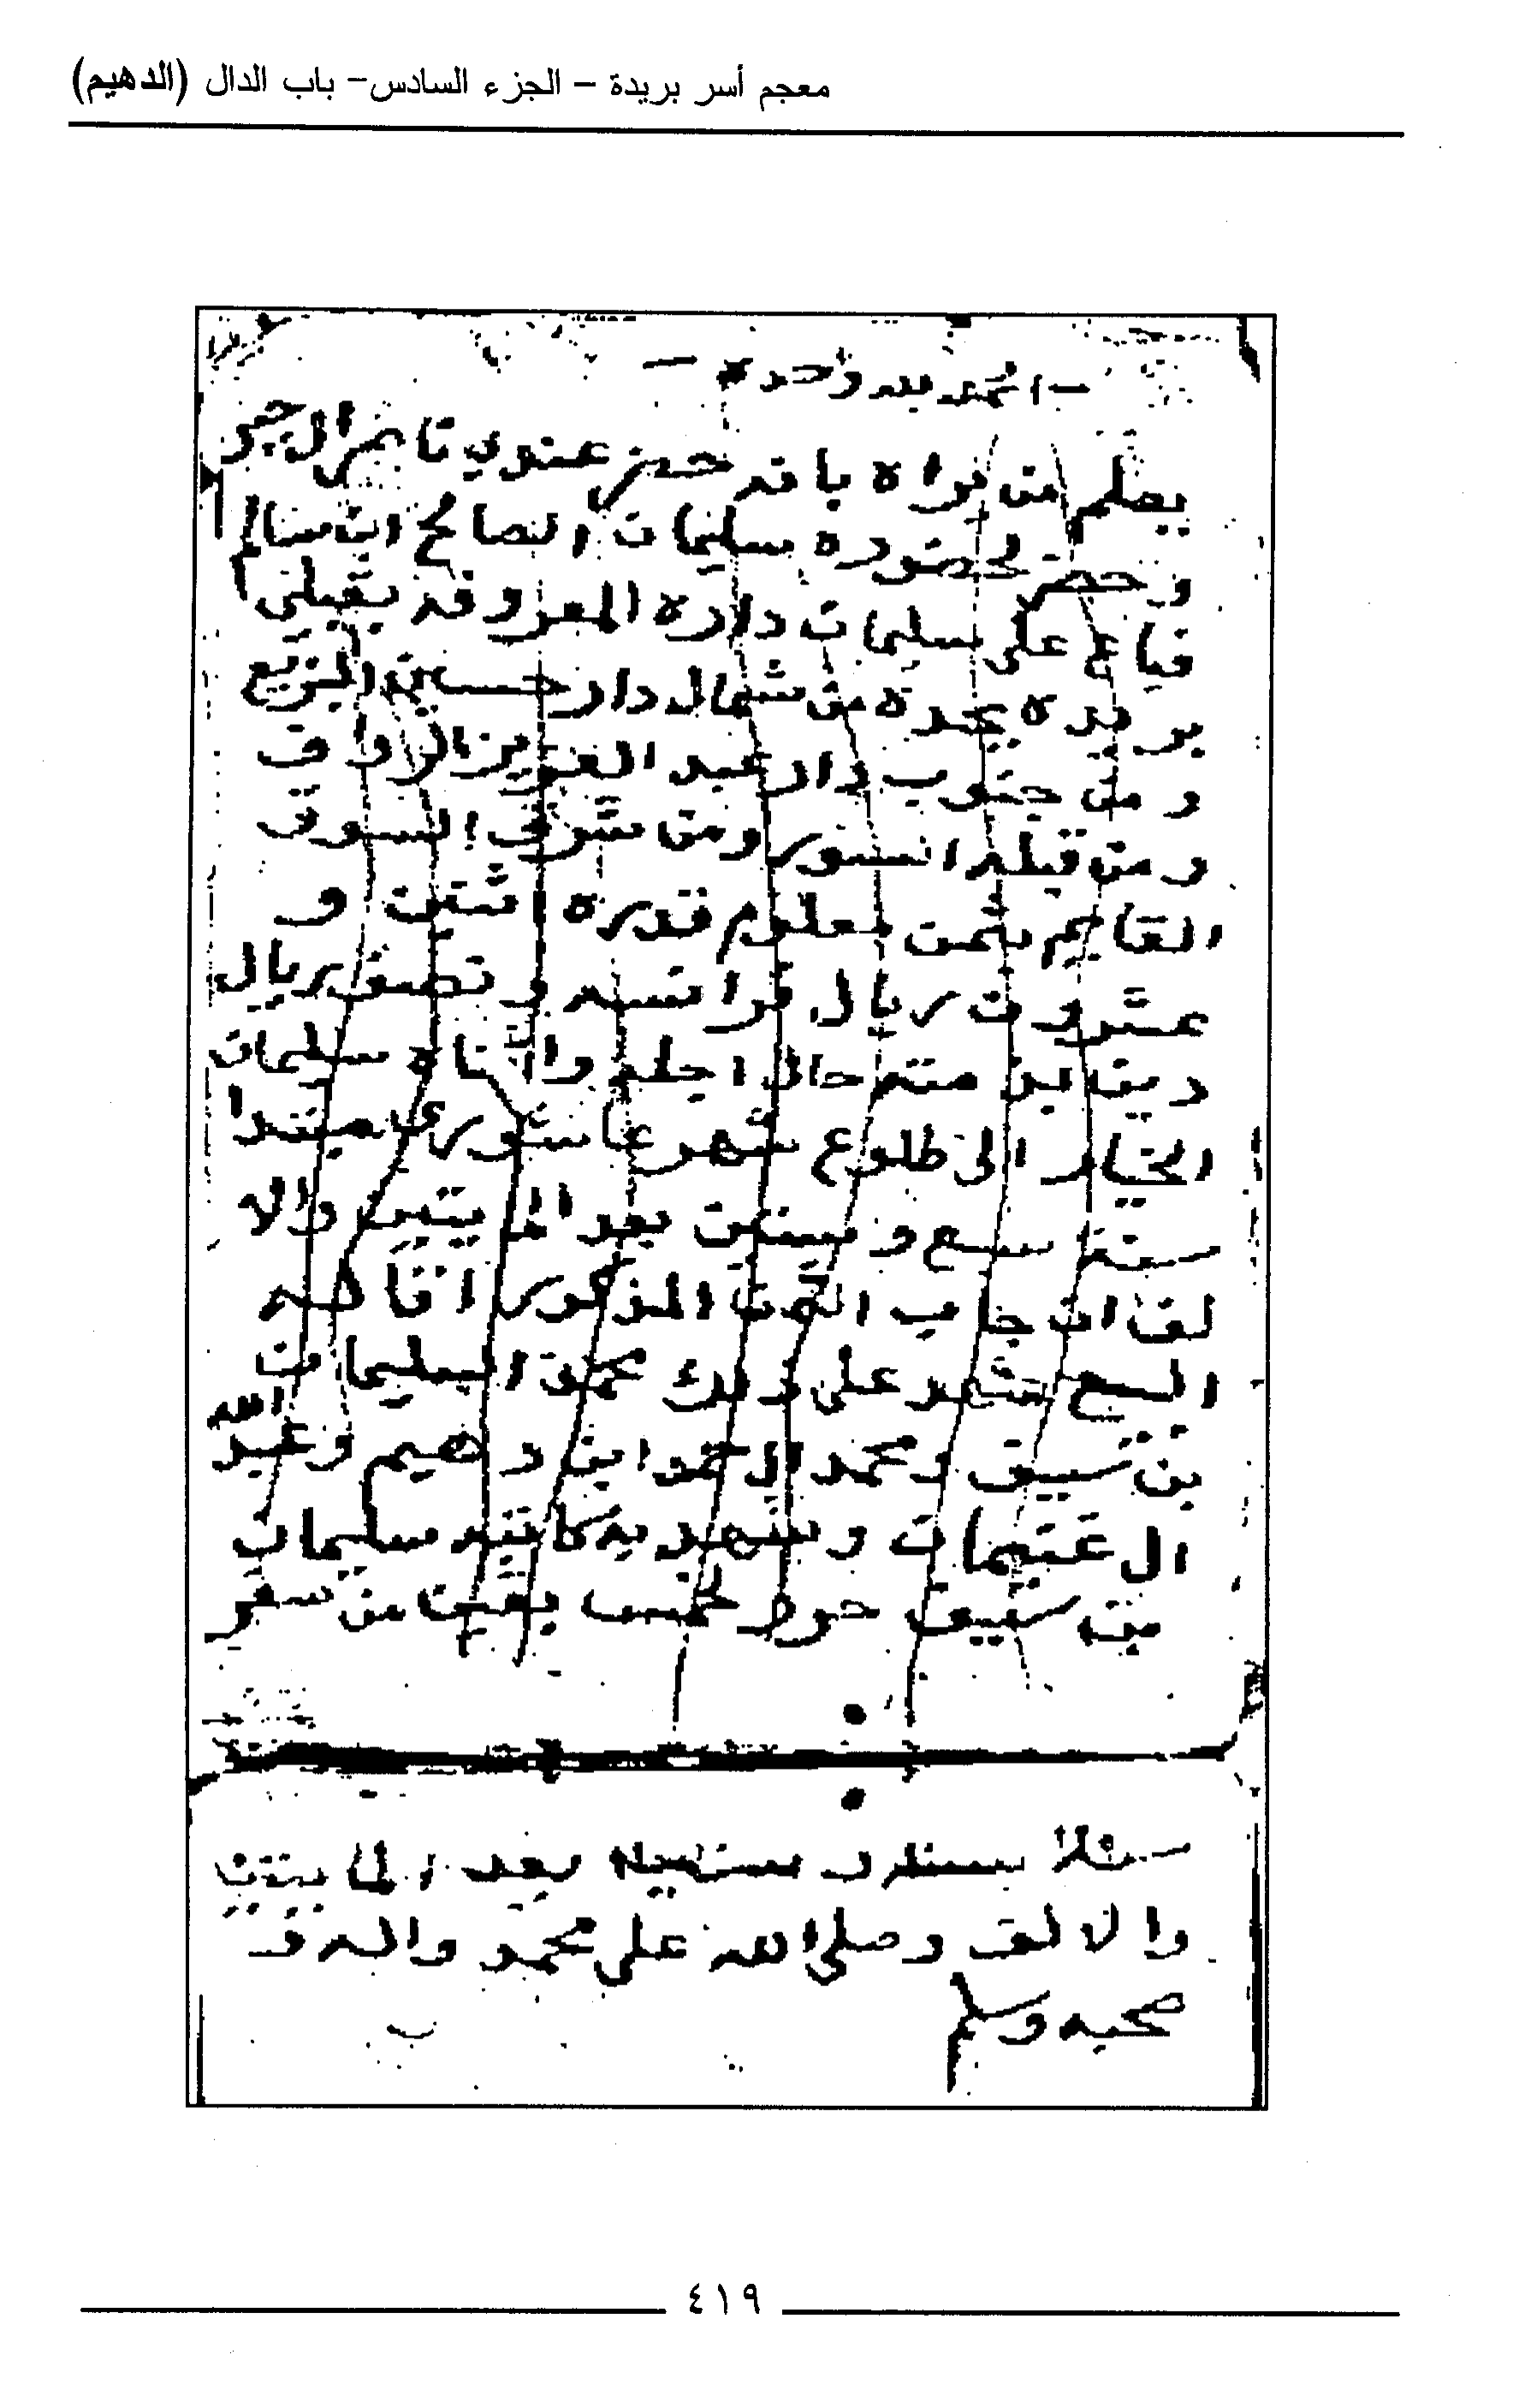 معجم أسر بريدة – الجزء السادس– باب الدال (الدهيم)
– الحمد لله وحده –
يعلم من يراه بانه حضر عندي ناصر ال
وحضر لحضوره سليمان الصالح ابن سالم
فباع على سليمان داره المعروفه بقبلي
بريده يحده من شمال دار حسين
و من جنوب دار عبد العزيز ال
و من قبله السور ومن شرق السوق
القايم بثمن معلوم قدره اثنين و
عشرون ريال فرانسه و نصف ريال
دين ابن منه حال اجله واناه سليمان
الخيار الى طلوع شهر عاشورى مبتدا
سنة سبع و ستين بعد الميتين والا
لف ان جاب الثمن المذكور انفاكه
البيع شهد على ذلك محمد السليمان
بن سيف ومحمد ال حمد ابن دهيم وعبد الله
ال عثيمان وشهد به كاتبه سليمان
بن سيف حرر لخمس بقين من سفر
سنة بعد الما يتين
والا لف وصلى الله على محمد واله و
صحبه وسلم
٤١٩